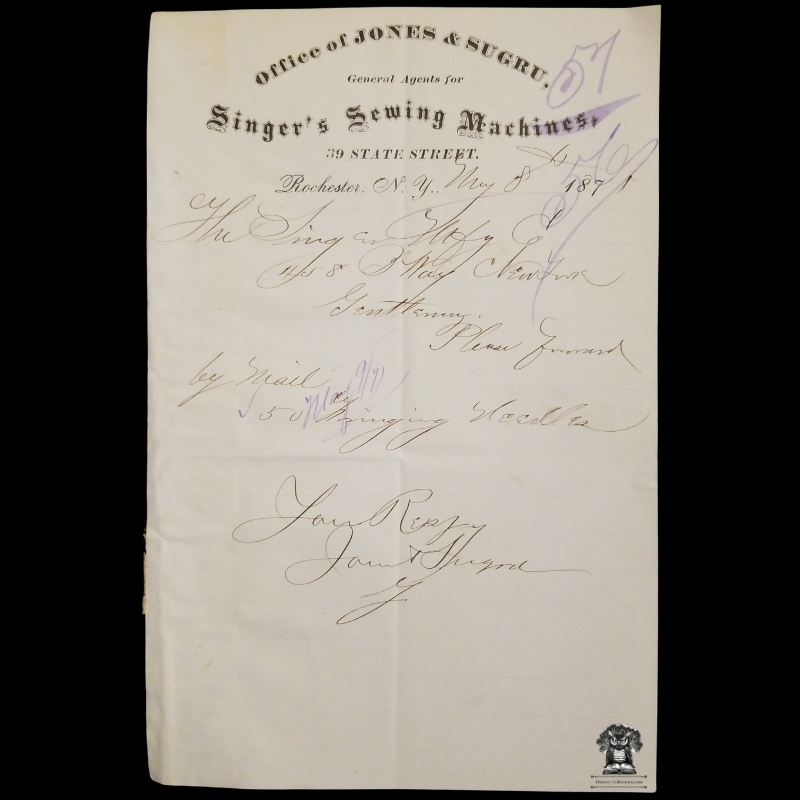 Office of JONES & SUGRU,
57
General Agents for
Singer's Sewing Machines,
39 STATE STREET.
56
Rochester, N. Y., May 8th 1871
The Singer Mfg Co
458 B'Way New York
Gentlemen.
Please forward
by Mail
May 9/71
50 Fringing Needles
Your Respfy
Jones & Sugru